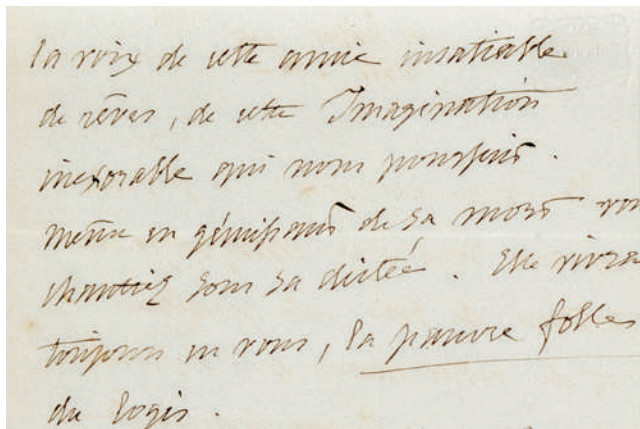 la voix de cette amie insatiable
de rêves, de cette Imagination
inexorable qui nous poursuit.
même en gémissant de sa mort vous
chantiez sous sa dictée. Elle vivra
toujours en vous, la pauvre folle
du logis.